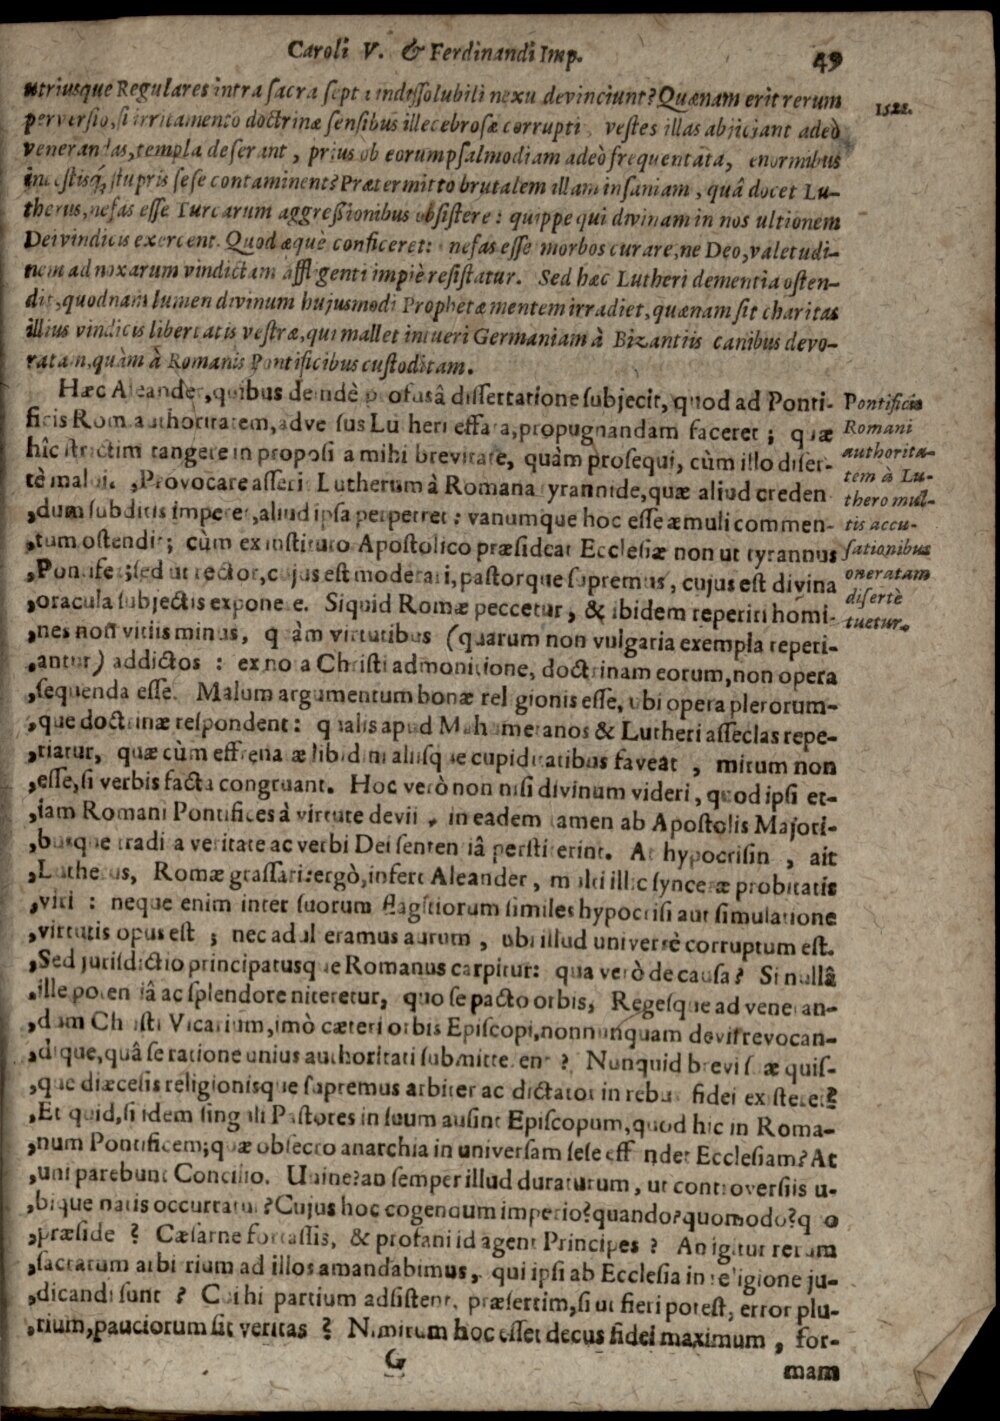 Caroli V. & Ferdinandi Imp. 49
utriusque Regulares intra sacra septa indissolubili nexu devinciunt? Quænam erit rerum
1521.
perversio, si irritamento doctrinæ sensibus illecebrosæ corrupti, vestes illas abjiciant adeò
venerandas, templa deserant, prius ob eorum psalmodiam adeò frequentata, enormibus
incestisq; stupris sese contaminent? Prætermitto brutalem illam insaniam, quâ docet Lu-
therus, nefas esse Turcarum aggreßionibus obsistere: quippe qui divinam in nos ultionem
Dei vindicis exercent. Quod æque conficeret: nefas esse morbos curare, ne Deo, valetudi-
nem ad noxarum vindictam affligenti impiè resistatur. Sed hæc Lutheri dementia osten-
dit, quodnam lumen divinum hujusmodi Prophetæ mentem irradiet, quænam sit charitas
illius vindicis libertatis vestræ, qui mallet intueri Germaniam à Bizantiis canibus devo-
ratam, quàm à Romanis Pontificibus custoditam.
Hæc Aleander, quibus deindè profusâ dissertatione subjecit, quod ad Ponti-
ficis Rom authoritatem, adversus Lutheri effata, propugnandam faceret; quæ
hîc strictim tangere in proposita mihi brevitate, quàm prosequi, cùm illo diser-
tè malui. ,Provocare asseri Lutherum à Romana tyrannide, quæ aliud creden
,dum subditis imperet, aliud ipsa perpetret: vanumque hoc esse æmuli commen-
,tum ostendit; cùm ex instituto Apostolico præsideat Ecclesiæ non ut tyrannus
,Pontifex; sed ut rector, cujus est moderari, pastorque supremus, cujus est divina
,oracula subjectis exponere. Siquid Romæ peccetur, & ibidem reperiri homi-
,nes non vitiis minus, quàm virtutibus (quarum non vulgaria exempla reperi-
,antur) addictos: ex nota Christi admonitione, doctrinam eorum, non opera
,sequenda esse. Malum argumentum bonæ religionis esse, ubi opera plerorum-
,que doctrinæ respondent: qualis apud Mahumetanos & Lutheri asseclas repe-
,riatur, quæ cùm effrenatæ libidini aliisque cupiditatibus faveat, mirum non
,esse, si verbis facta congruant. Hoc verò non nisi divinum videri, quod ipsi et-
,iam Romani Pontifices à virtute devii, in eadem tamen ab Apostolis Majori-
,busque tradita veritate ac verbi Dei sententiâ perstiterint. At hypocrisin, ait
,Lutherus, Romæ grassari: ergò, infert Aleander, multi illic synceræ probitatis
,viri: neque enim inter suorum flagitiorum similes hypocrisi aut simulatione
,virtutis opus est; nec adulteramus aurum, ubi illud universè corruptum est.
,Sed jurisdictio principatusque Romanus carpitur: qua verò de causa? Si nullâ
,ille potentiâ ac splendore niteretur, quo se pacto orbis, Regesque ad veneran-
,dum Christi Vicarium, imò cæteri orbis Episcopi, nonnunquam devii revocan-
,dique, quâ se ratione unius authoritati submitterent? Nunquid brevi suæ quis-
,que diæcesis religionisque supremus arbiter ac dictator in rebus fidei existeret?
,Et quid, si idem singuli Pastores in suum ausint Episcopum, quod hic in Roma-
,num Pontificem; quæ obsecro anarchia in universam sese effundet Ecclesiam? At
,uni parebunt Concilio. Utine? an semper illud duraturum, ut controversiis u-
,bique natis occurratur? Cujus hoc cogendum imperio? quando? quomodo? quo
,præside? Cæsarne fortassis, & profani id agent Principes? An igitur rerum
,sacrarum arbitrium ad illos amandabimus, qui ipsi ab Ecclesia in religione ju-
,dicandi sunt? Cui hi partium adsistent, præsertim, si ut fieri potest, error plu-
,rium, pauciorum sit veritas? Nimirum hoc esset decus fidei maximum, for-
G
mam
Pontificis
Romani
authorita-
tem à Lu-
thero mul-
tis accu-
sationibus
oneratam
disertè
tuetur.